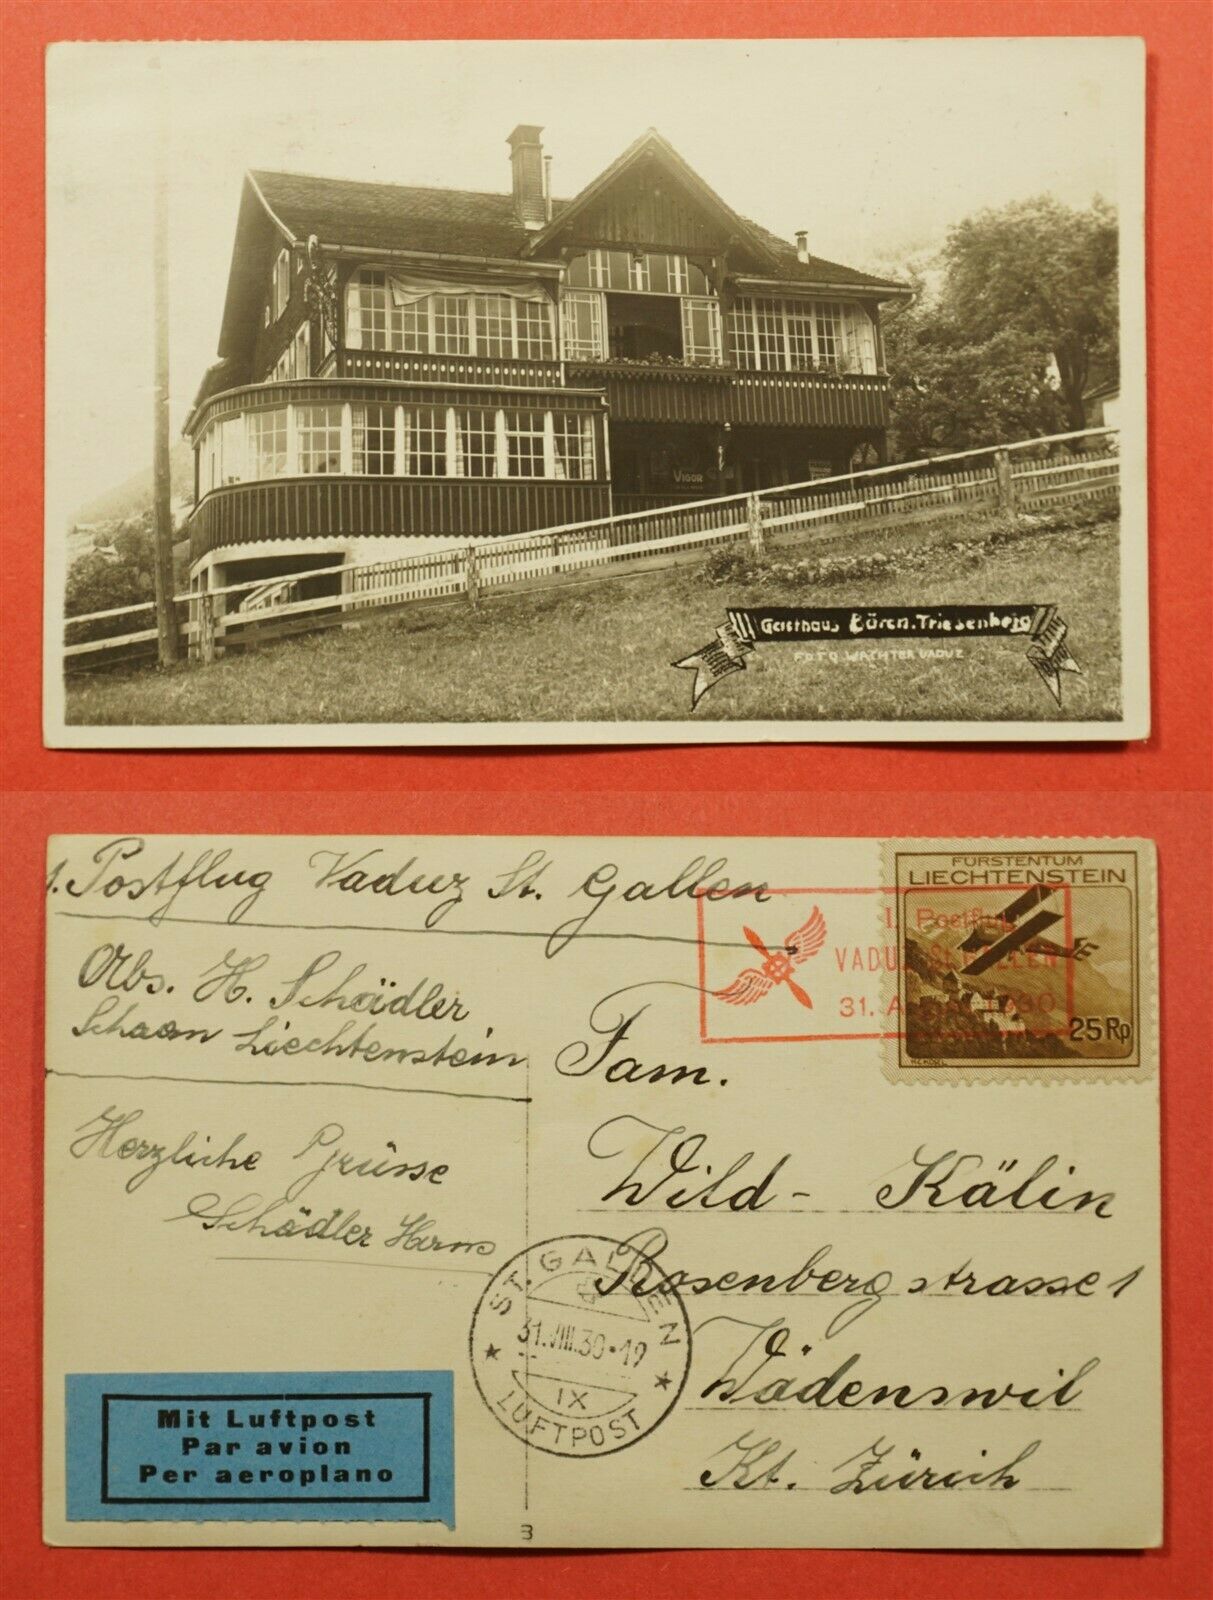 VIGOR
Gasthaus Bären. Triesenberg
FOTO WACHTER VADUZ
1. Postflug Vaduz St. Gallen
FÜRSTENTUM
LIECHTENSTEIN
I. Postflug
VADUZ-ST. GALLEN
31. August 1930
25 Rp
Abs. H. Schädler
Schaan Liechtenstein
Fam.
Herzliche Grüsse
Schädler Herm
Wild - Kälin
Rosenbergstrasse 1
Wädenswil
Kt. Zürich
ST. GALLEN
31.VIII.30·19
IX
LUFTPOST
Mit Luftpost
Par avion
Per aeroplano
3